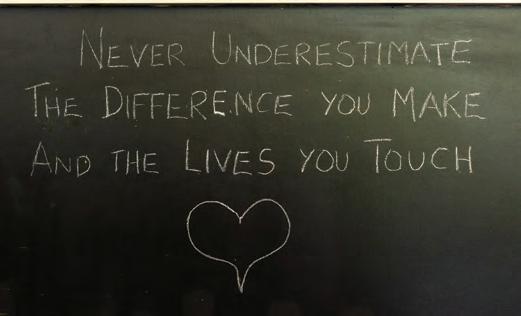 NEVER UNDERESTIMATE
THE DIFFERENCE YOU MAKE
AND THE LIVES YOU TOUCH